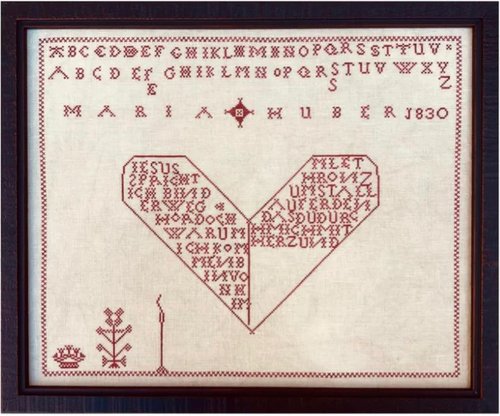 ABCEDDEFGHIKLMENOPQRSSTTUV
ABCDEFGHIKLMNOPQRSTUVWXY
E S Z
MARIA HUBER 1830
IESUS
SPRICHT
ICH BIND
ERWEG
HORDOCH
WARUM
ICHKOM
MENB
INVO
NH
IM
MLET
HRONZ
UMSTALL
AUFERDEN
DASDUDURC
HMICHMIT
HERZUND